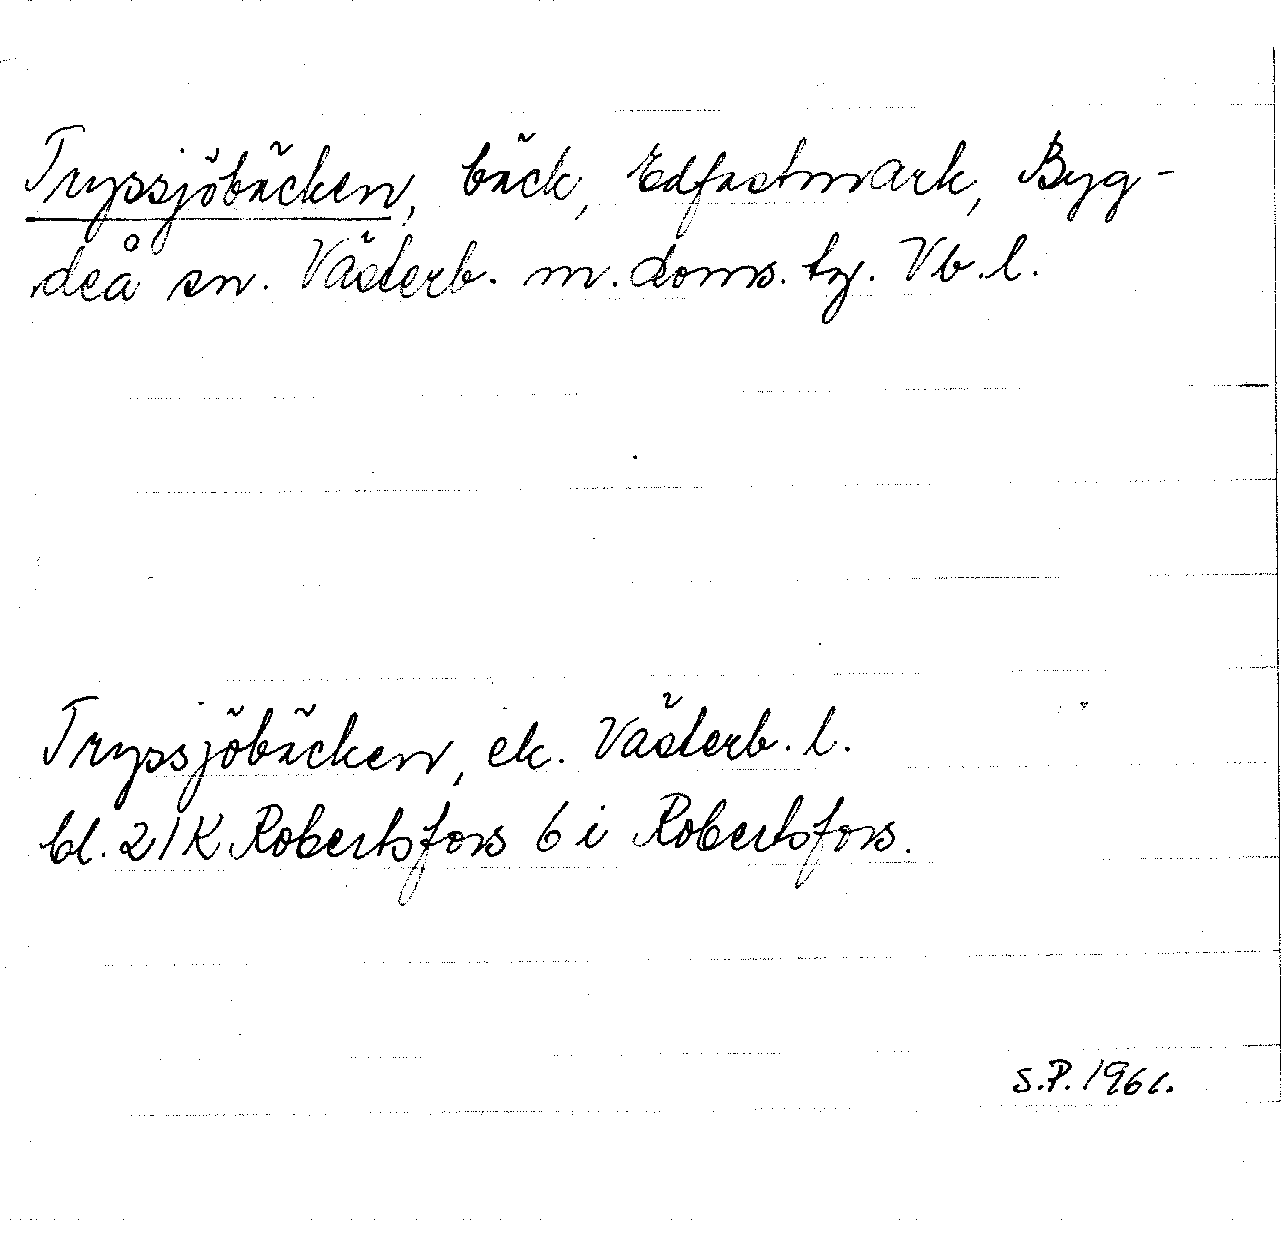 Tryssjöbäcken, bäck, Edfastmark, Byg-
deå sn. Västerb. m. doms. tg. Vb.l.
Tryssjöbäcken, ek. Västerb. l.
bl. 21K Robertsfors 6 i Robertsfors.
S.P. 1961.